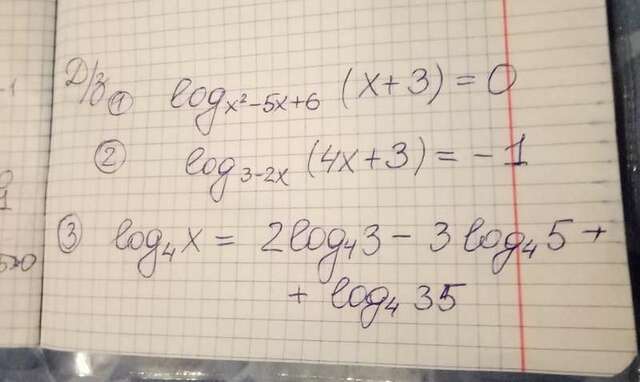 Д/з ① log_{x²-5x+6} (x+3) = 0
② log_{3-2x} (4x+3) = -1
③ log₄x = 2log₄3 - 3log₄5 +
+ log₄35